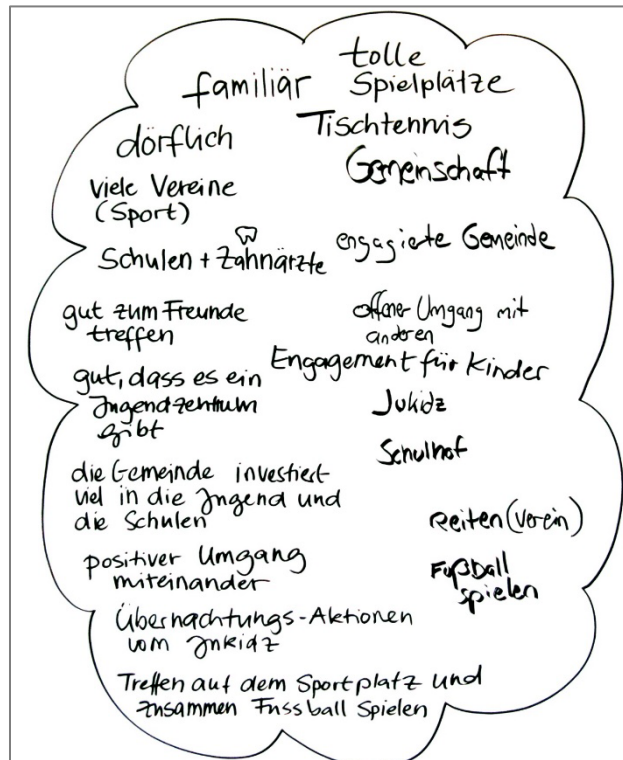 tolle
familiär Spielplätze
dörflich Tischtennis
Gemeinschaft
viele Vereine
(Sport)
Schulen + Zahnärzte
engagierte Gemeinde
gut zum Freunde
treffen
offener Umgang mit
anderen
Engagement für Kinder
gut, dass es ein
Jugendzentrum
gibt
Jukidz
Schulhof
die Gemeinde investiert
viel in die Jugend und
die Schulen
Reiten (Verein)
positiver Umgang
miteinander
Fußball
spielen
Übernachtungs-Aktionen
vom Jukidz
Treffen auf dem Sportplatz und
zusammen Fussball Spielen